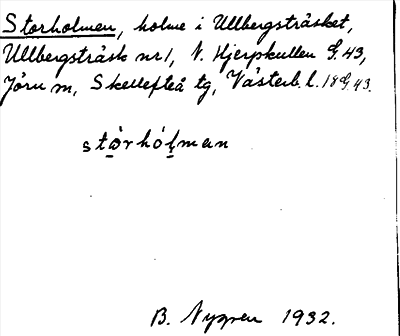 Storholmen, holme i Ullbergsträsket,
Ullbergsträsk nr 1, N. Hjerpkullen G. 43,
Jörn sn, Skellefteå tg, Västerb. l. 18 G. 43.
stòrhólman
B. Nygren 1932.